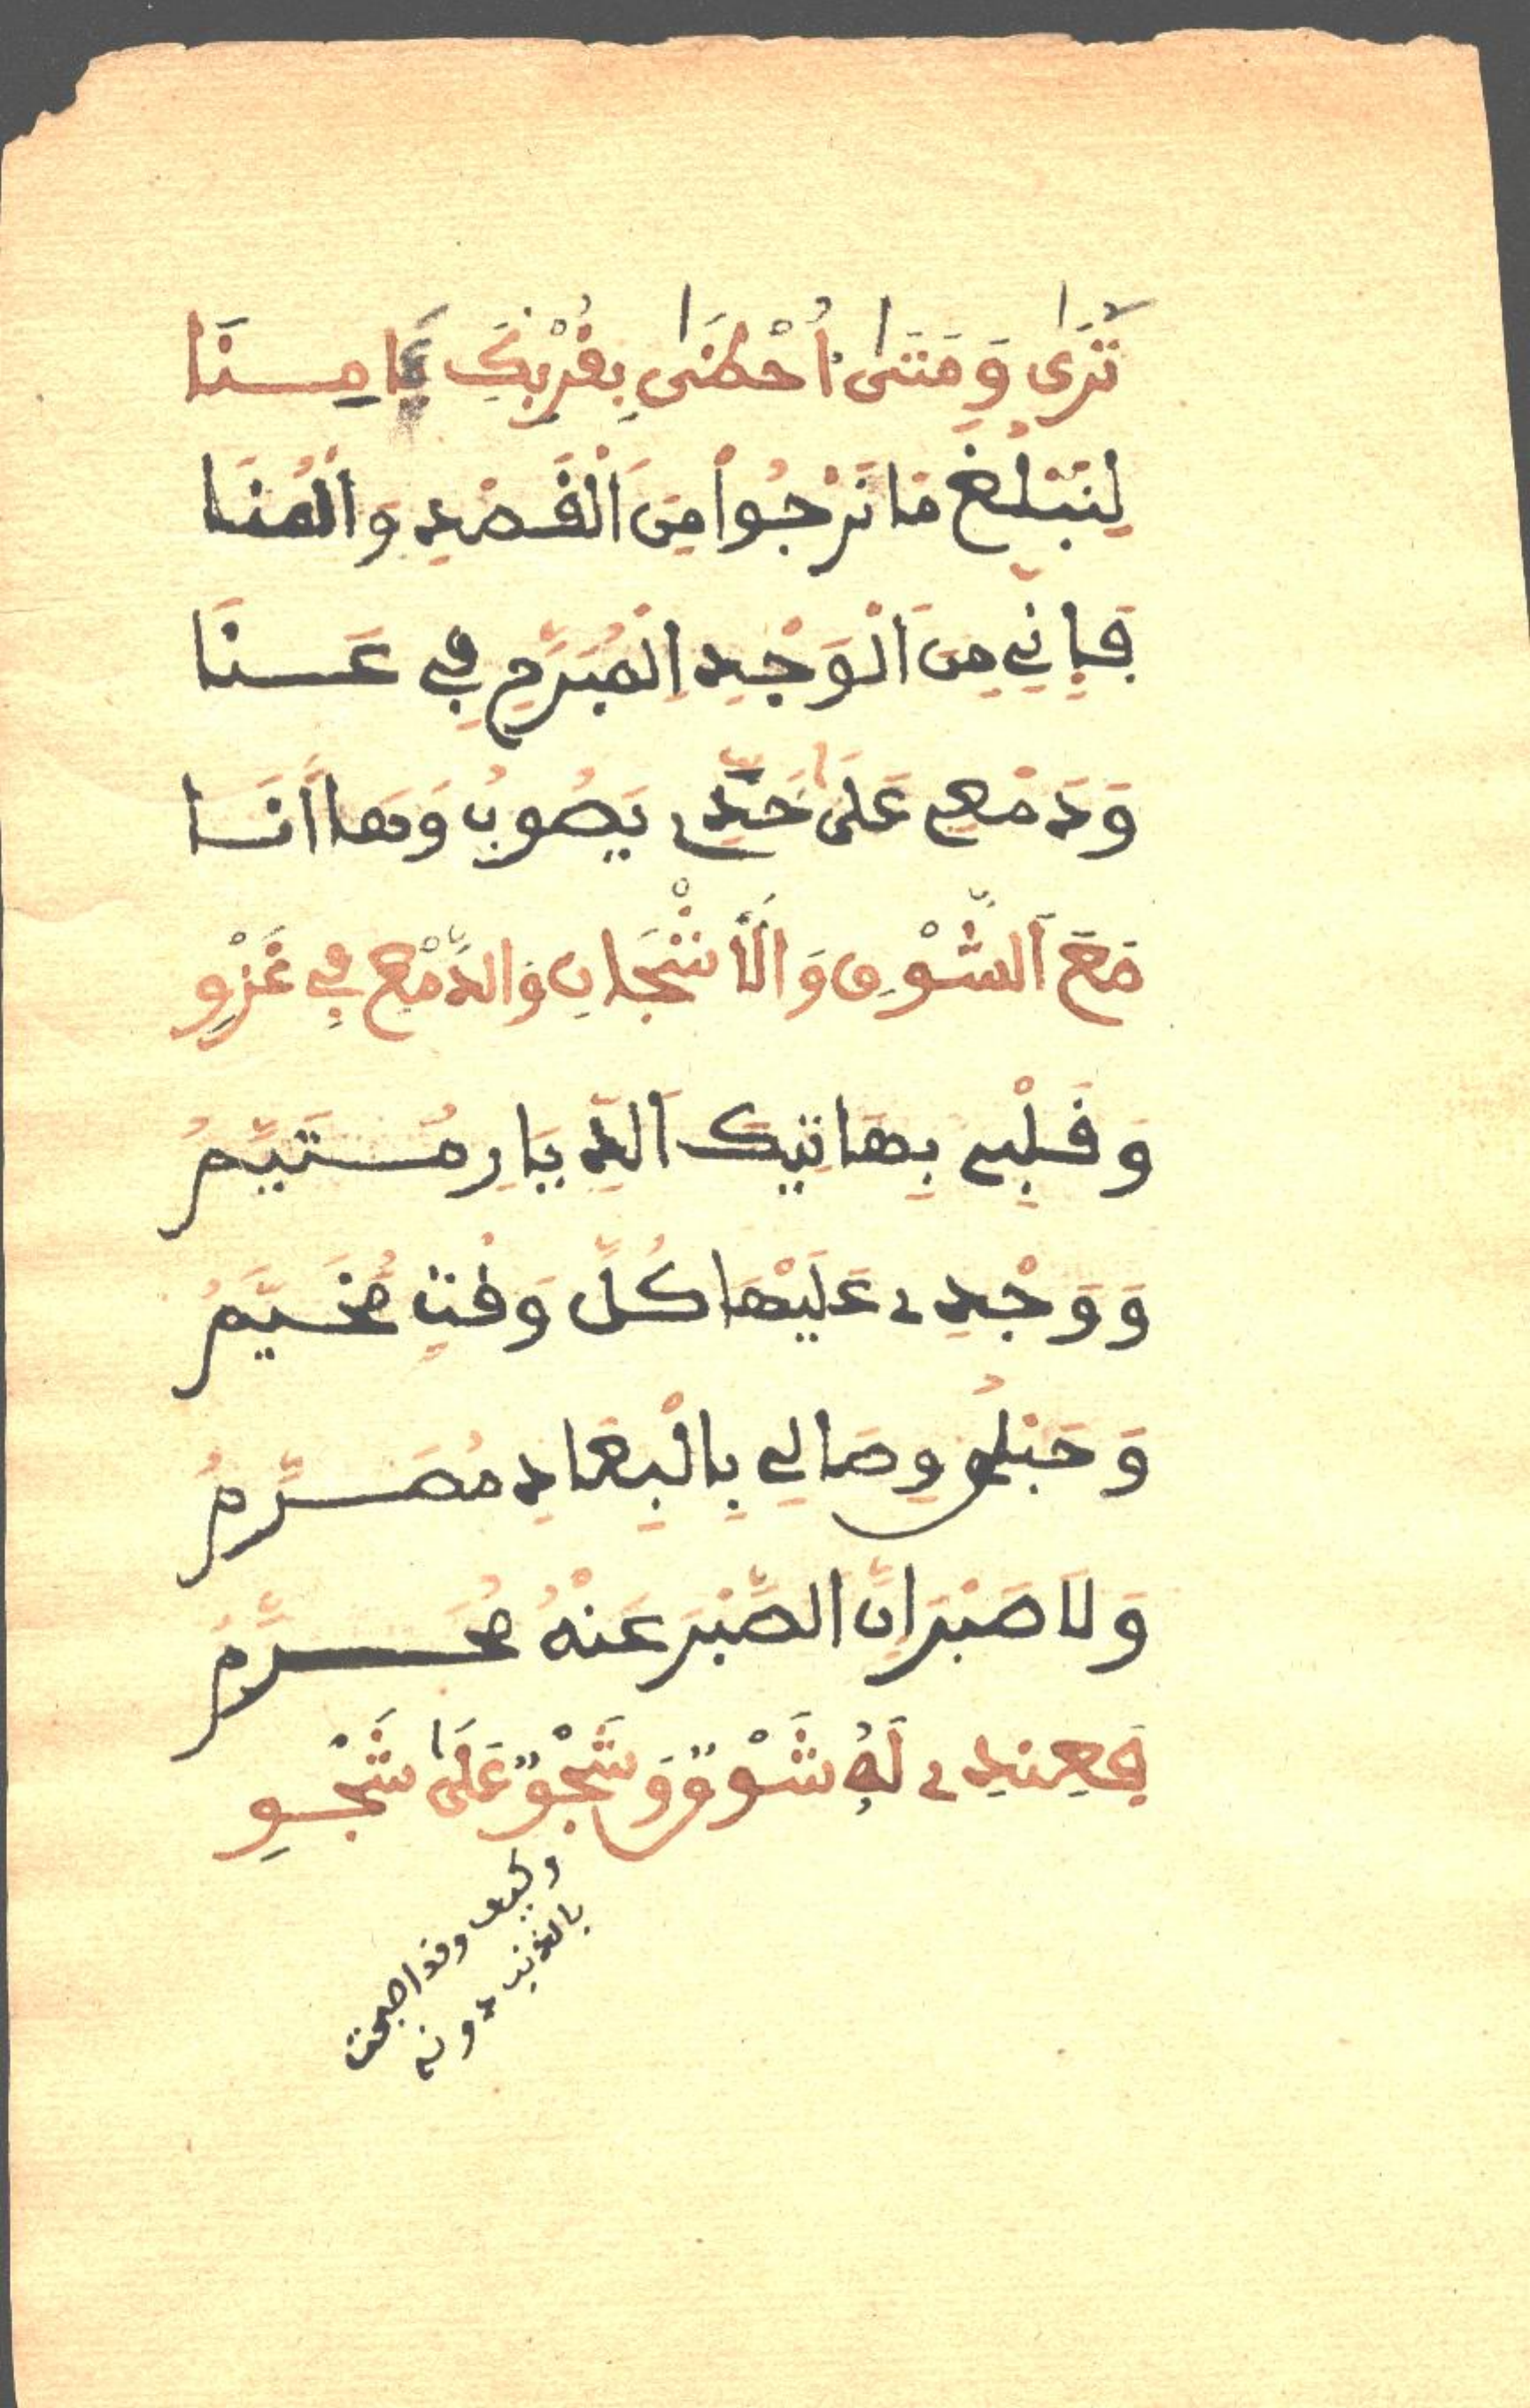 تَرَى وَمَتَى أَحْظَى بِقُرْبِكَ يَا مِنَا
لِنَبْلُغَ مَا نَرْجُوا مِنَ الْقَصْدِ وَالْمُنَا
فَإِنِّي مِنَ الْوَجْدِ الْمُبَرِّحِ فِي عَنَا
وَدَمْعِي عَلَى خَدِّي يَصُوبُ وَهَا أَنَا
مَعَ الشَّوْقِ وَالْأَشْجَانِ وَالدَّمْعِ فِي غَزْوِ
وَقَلْبِي بِهَاتِيكَ الدِّيَارِ مُتَيَّمُ
وَوَجْدِي عَلَيْهَا كُلَّ وَقْتٍ مُخَيَّمُ
وَحَبْلُ وِصَالِي بِالْبِعَادِ مُصَرَّمُ
وَلَا صَبْرَ إِنَّ الصَّبْرَ عَنْهُ مُحَرَّمُ
فَعِنْدِي لَهُ شَوْقٌ وَشَجْوٌ عَلَى شَجْوِ
وكيف وقد اصبحت
بالذنب دونه